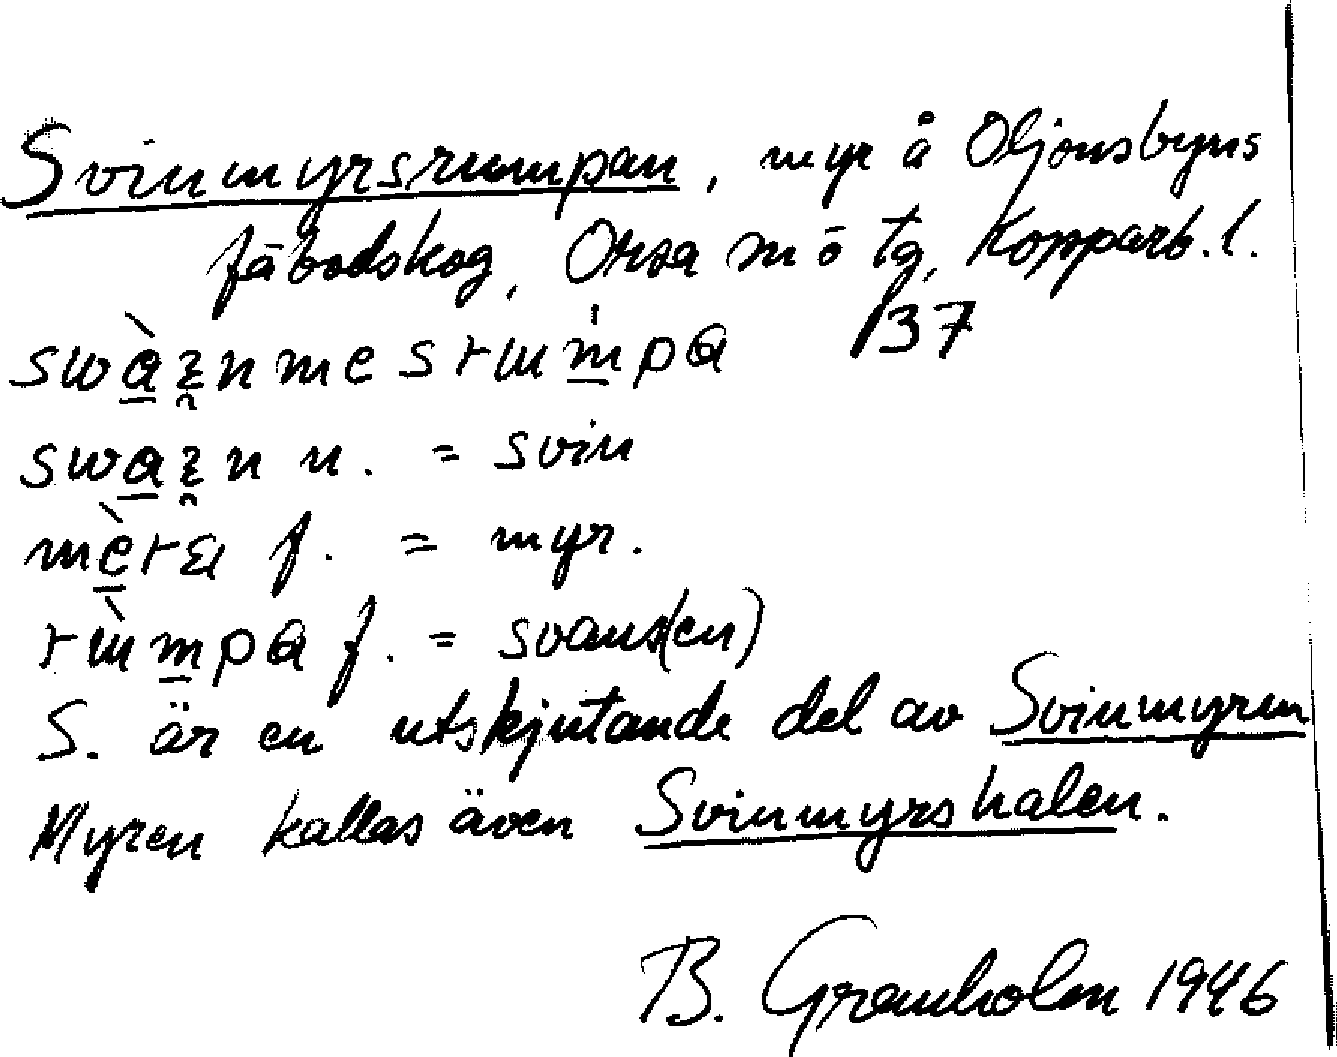 Svinmyrsrumpan, myr å Oljonsbyns
fäbodskog, Orsa sn ö tg, Kopparb. l.
137
n. = svin
f. = myr.
f. = svans(en)
S. är en utskjutande del av Svinmyren
Myren kallas även Svinmyrshalen.
B. Granholm 1946